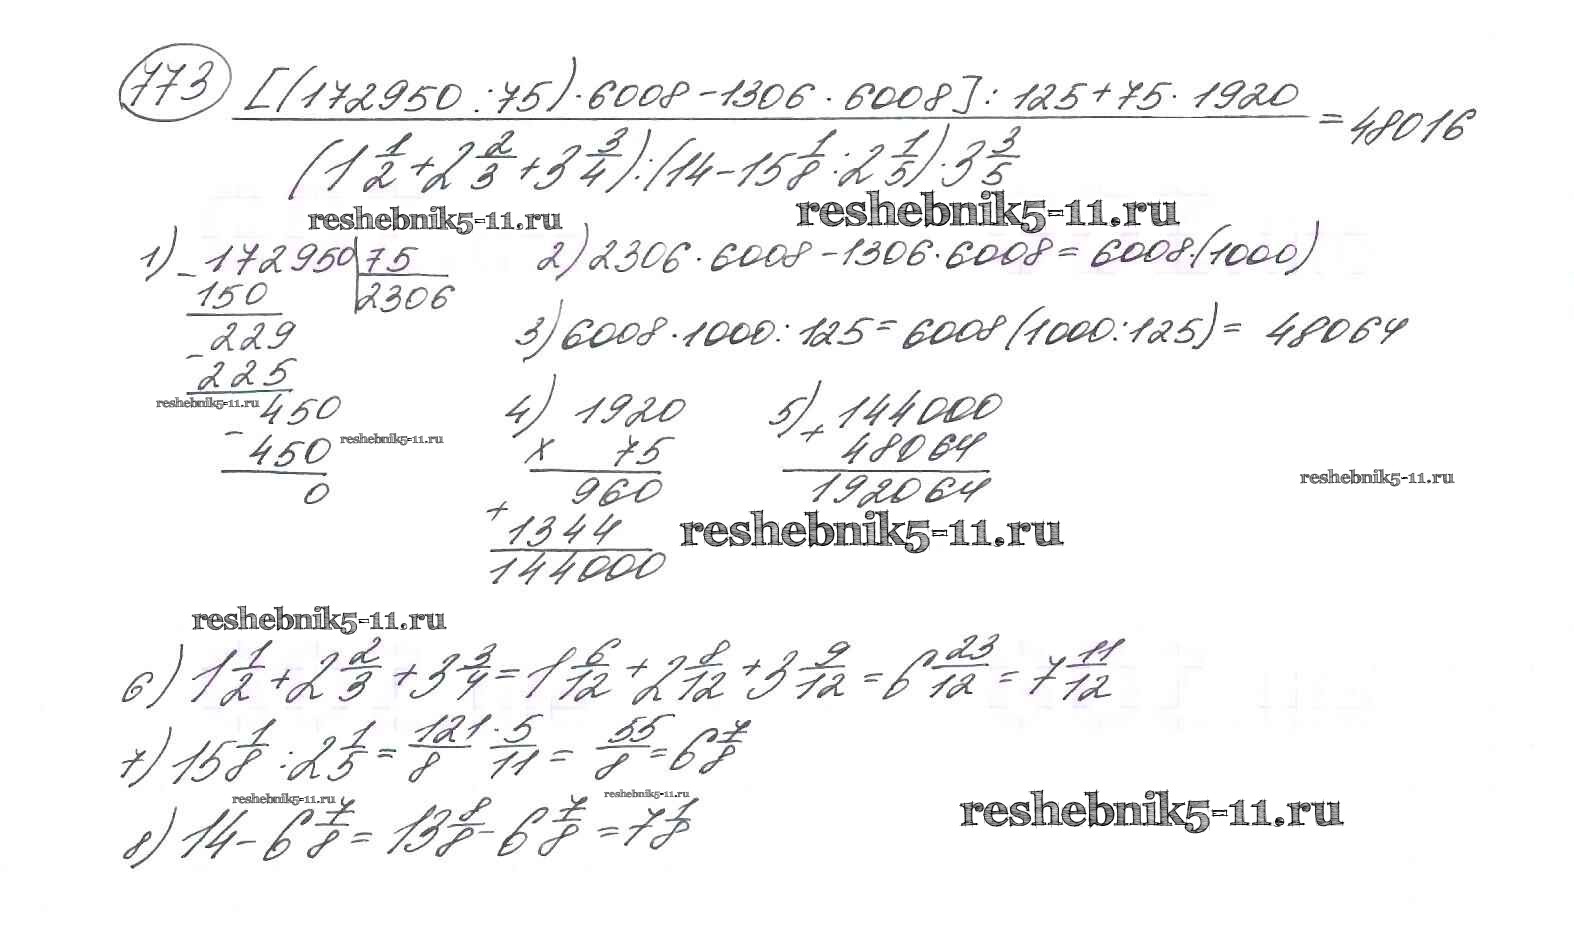 773 [(172950 : 75) · 6008 - 1306 · 6008] : 125 + 75 · 1920
(1 1/2 + 2 2/3 + 3 3/4) : (14 - 15 1/8 : 2 1/5) · 3 3/5
= 48016
reshebnik5-11.ru
reshebnik5-11.ru
1) - 172950 | 75
150 2306
- 229
225
reshebnik5-11.ru
- 450
450
reshebnik5-11.ru
0
2) 2306 · 6008 - 1306 · 6008 = 6008 · (1000)
3) 6008 · 1000 : 125 = 6008 (1000 : 125) = 48064
4) 1920
x 75
960
+ 1344
144000
5) + 144000
48064
192064
reshebnik5-11.ru
reshebnik5-11.ru
reshebnik5-11.ru
6) 1 1/2 + 2 2/3 + 3 3/4 = 1 6/12 + 2 8/12 + 3 9/12 = 6 23/12 = 7 11/12
7) 15 1/8 : 2 1/5 = 121/8 · 5/11 = 55/8 = 6 7/8
reshebnik5-11.ru
reshebnik5-11.ru
8) 14 - 6 7/8 = 13 8/8 - 6 7/8 = 7 1/8
reshebnik5-11.ru